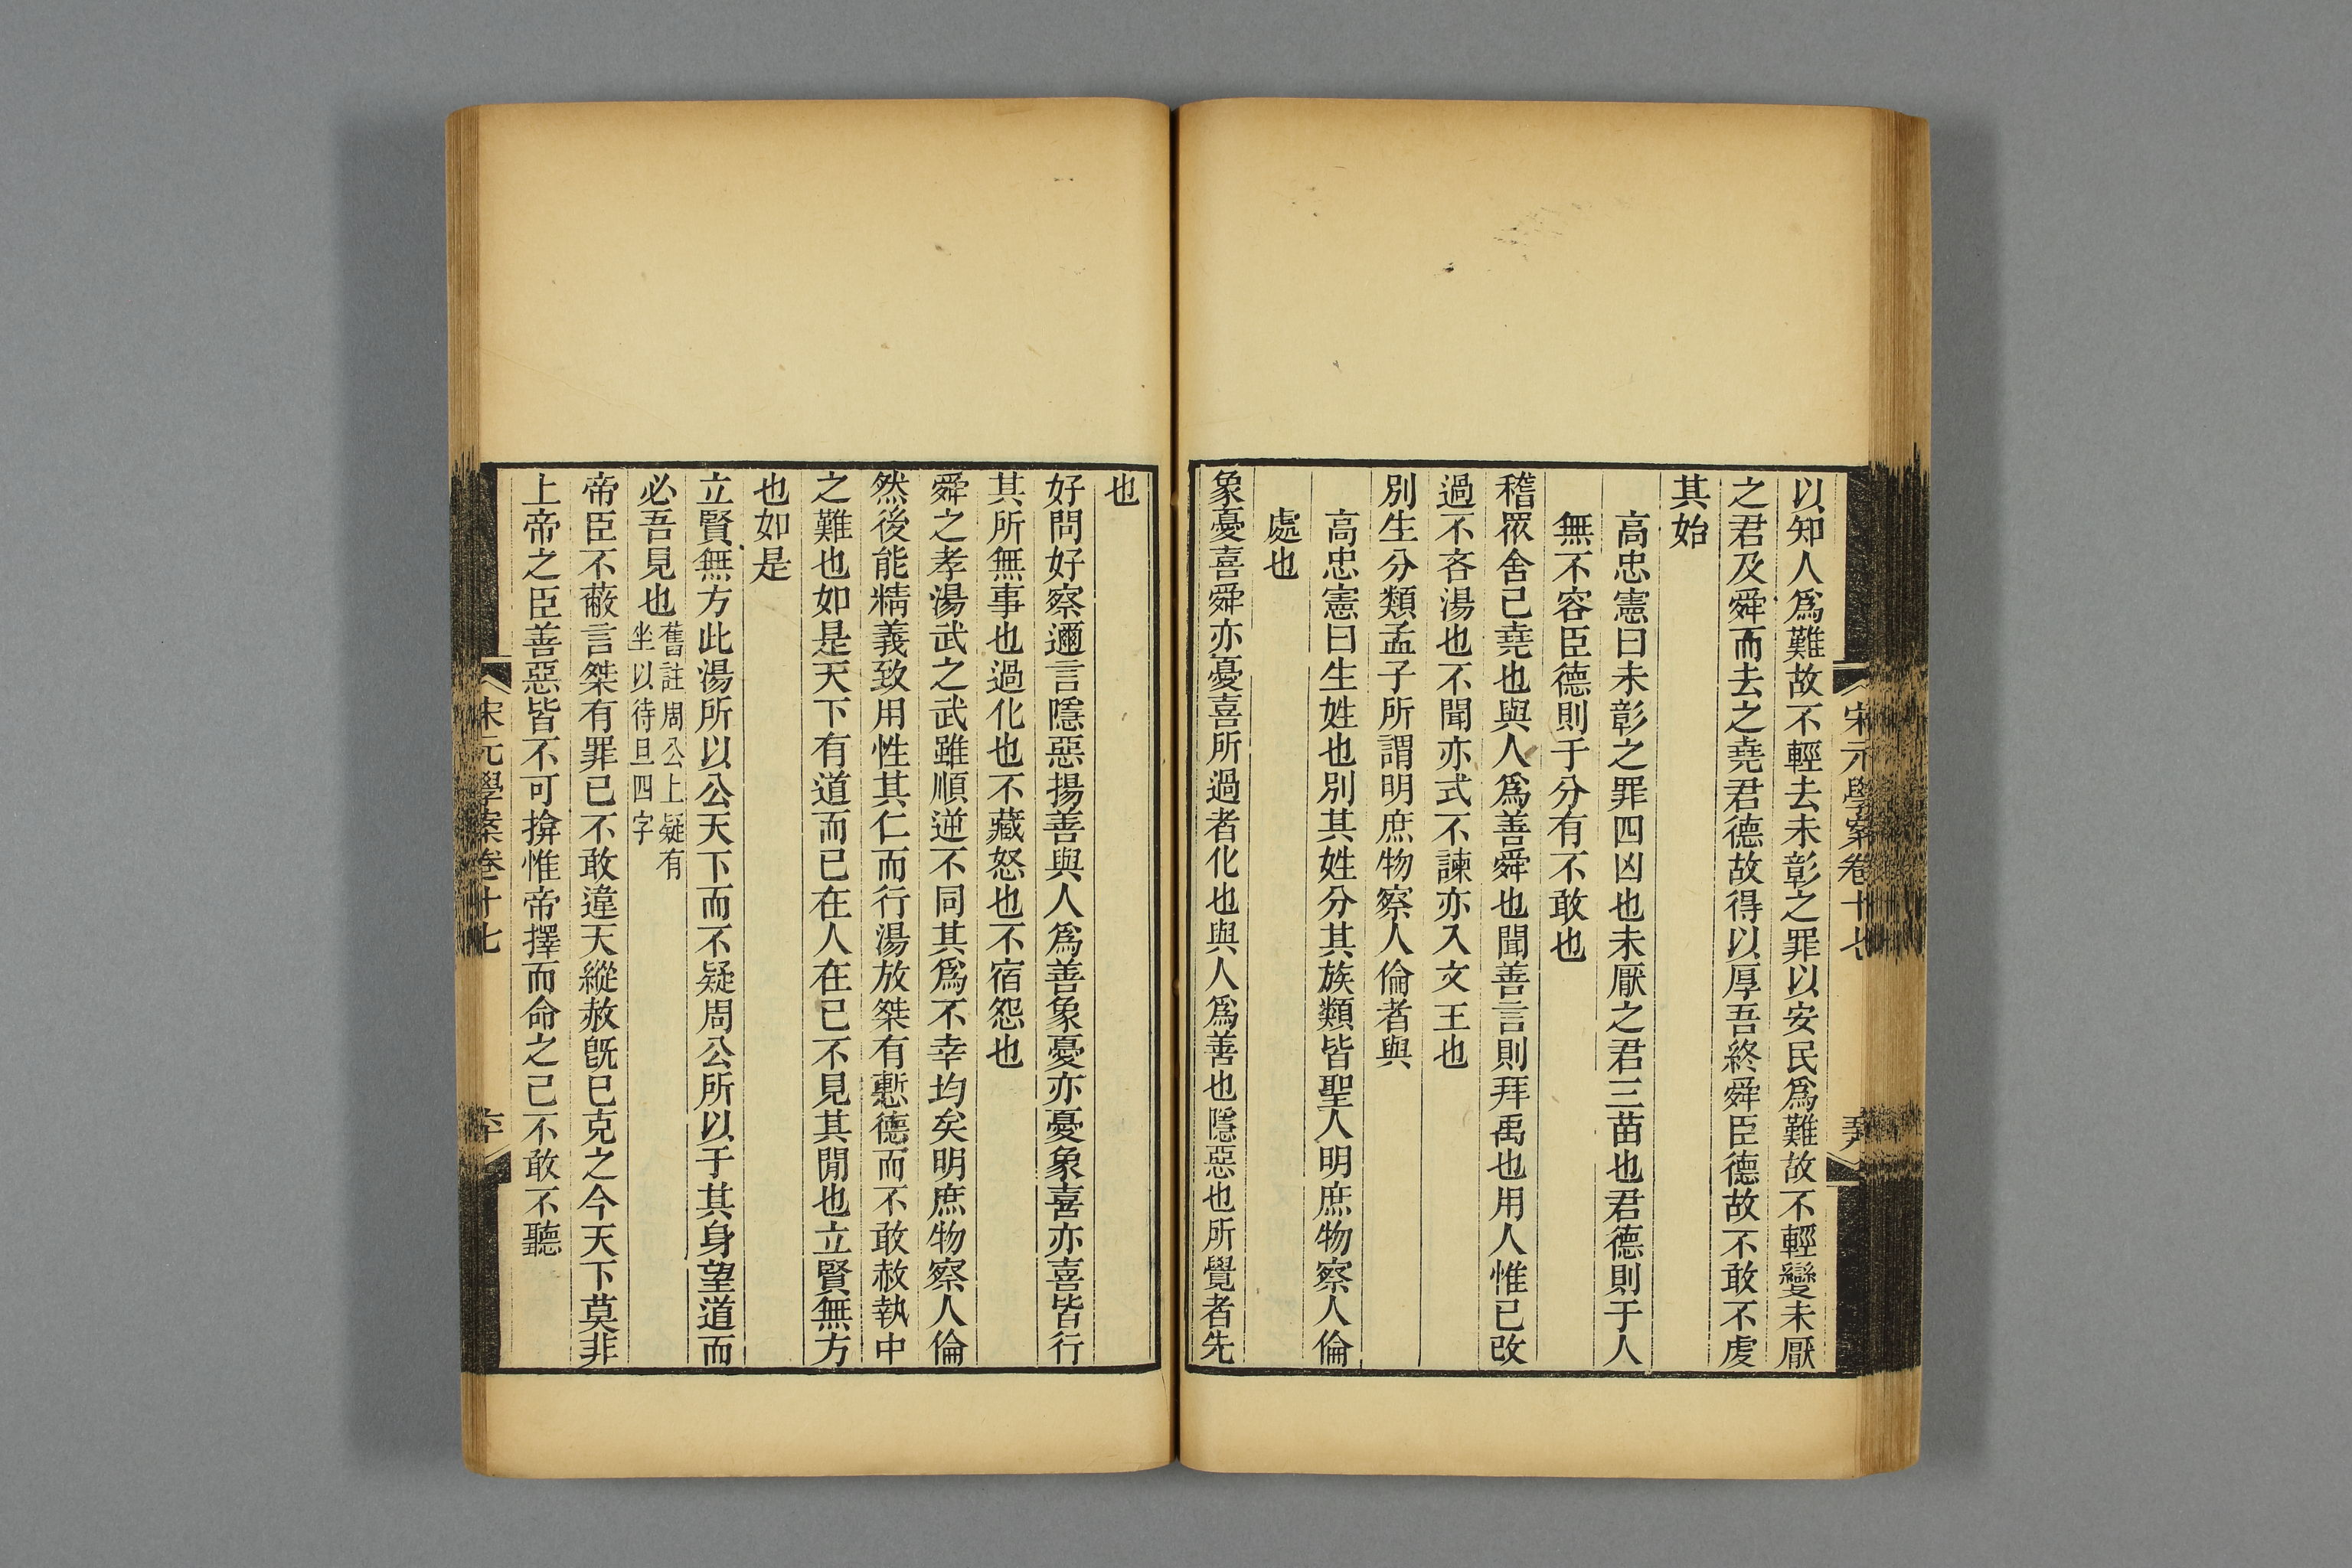 宋元學案卷十七
以知人爲難故不輕去未彰之罪以安民爲難故不輕變未厭
之君及舜而去之堯君德故得以厚吾終舜臣德故不敢不虔
其始
高忠憲曰未彰之罪四凶也未厭之君三苗也君德則于人
無不容臣德則于分有不敢也
稽眾舍己堯也與人爲善舜也聞善言則拜禹也用人惟已改
過不吝湯也不聞亦式不諫亦入文王也
別生分類孟子所謂明庶物察人倫者與
高忠憲曰生姓也別其姓分其族類皆聖人明庶物察人倫
處也
象憂喜舜亦憂喜所過者化也與人爲善也隱惡也所覺者先
也
好問好察邇言隱惡揚善與人爲善象憂亦憂象喜亦喜皆行
其所無事也過化也不藏怒也不宿怨也
舜之孝湯武之武雖順逆不同其爲不幸均矣明庶物察人倫
然後能精義致用性其仁而行湯放桀有慙德而不敢赦執中
之難也如是天下有道而已在人在已不見其閒也立賢無方
也如是
立賢無方此湯所以公天下而不疑周公所以于其身望道而
必吾見也舊註周公上疑有
坐以待旦四字
帝臣不蔽言桀有罪已不敢違天縱赦旣已克之今天下莫非
上帝之臣善惡皆不可揜惟帝擇而命之己不敢不聽
宋元學案卷十七